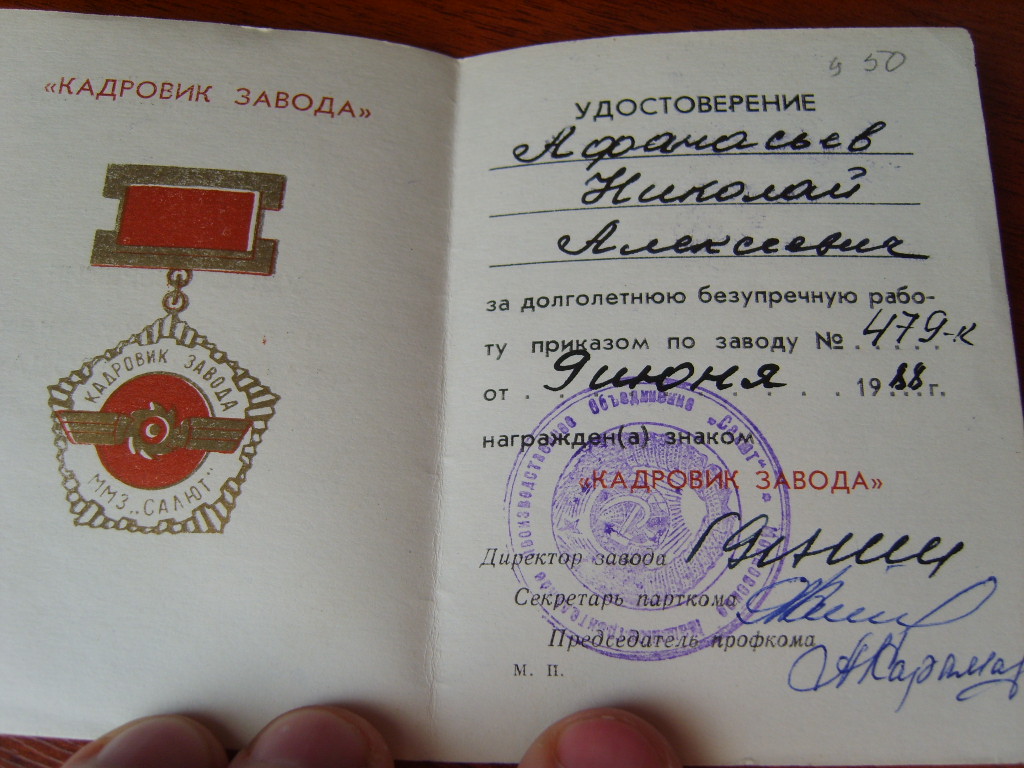 «КАДРОВИК ЗАВОДА»
КАДРОВИК ЗАВОДА
ММЗ „САЛЮТ"
50
УДОСТОВЕРЕНИЕ
Афанасьев
Николай
Алексеевич
за долголетнюю безупречную рабо-
ту приказом по заводу № 479-к
от 9 июня 1988 г.
награжден(а) знаком
«КАДРОВИК ЗАВОДА»
Директор завода
Секретарь парткома
Председатель профкома
М. П.
производственное объединение „Салют"